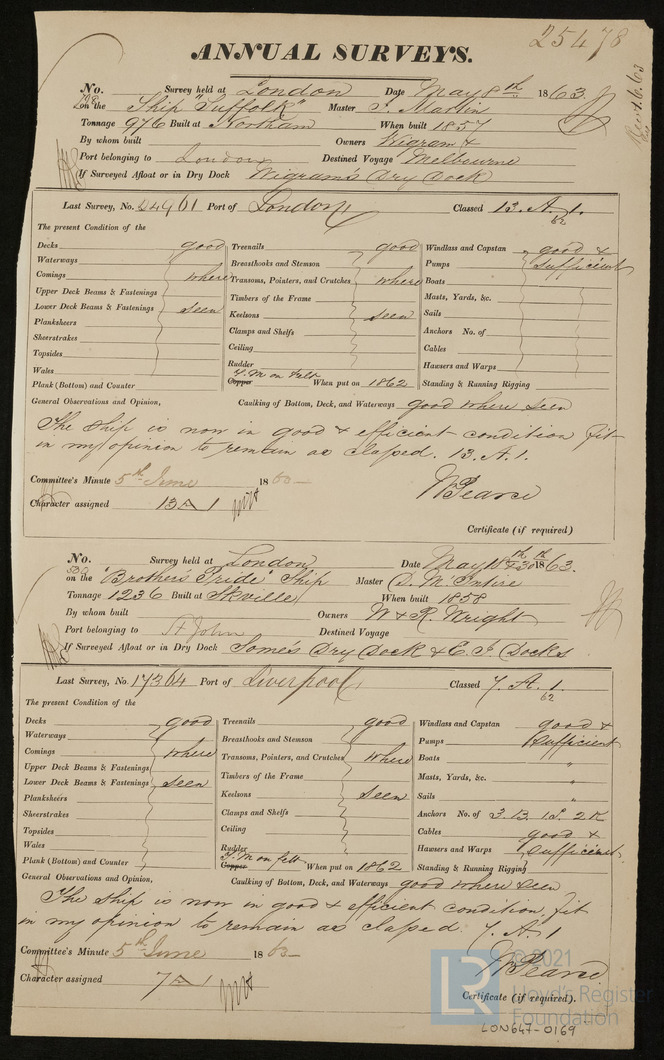 25478
ANNUAL SURVEYS.
Rec'd 6.6.63
No. 708 Survey held at London Date May 8th 1863.
on the Ship "Suffolk" Master J. Martin
Tonnage 976 Built at Northam When built 1857
By whom built Owners Wigram &
Port belonging to London Destined Voyage Melbourne
If Surveyed Afloat or in Dry Dock Wigram's Dry Dock
Last Survey, No. 24961 Port of London Classed 13. A. 1.
62
The present Condition of the
Decks good Treenails good Windlass and Capstan good &
Waterways Breasthooks and Stemson Pumps sufficient
Comings where Transoms, Pointers, and Crutches where Boats
Upper Deck Beams & Fastenings Timbers of the Frame Masts, Yards, &c.
Lower Deck Beams & Fastenings seen Keelsons seen Sails
Planksheers Clamps and Shelfs Anchors No. of
Sheerstrakes Ceiling Cables
Topsides Rudder Hawsers and Warps
Wales Y.M on felt
Plank (Bottom) and Counter Copper When put on 1862 Standing & Running Rigging
General Observations and Opinion, Caulking of Bottom, Deck, and Waterways good where seen
The Ship is now in good & efficient condition fit
in my opinion to remain as classed. 13. A. 1.
Committee's Minute 5th June 1863
Character assigned 13 A 1
W Pearce
Certificate (if required)
No. 502 Survey held at London Date May 18th & 30th 1863.
on the "Brother's Pride" Ship Master D. McIntire
Tonnage 1236 Built at When built 1858
By whom built Owners W & R. Wright
Port belonging to St John Destined Voyage
If Surveyed Afloat or in Dry Dock Some's Dry Dock & E. I Docks
Last Survey, No. 17364 Port of Liverpool Classed 7. A. 1.
62
The present Condition of the
Decks good Treenails good Windlass and Capstan good &
Waterways Breasthooks and Stemson Pumps sufficient
Comings where Transoms, Pointers, and Crutches where Boats "
Upper Deck Beams & Fastenings Timbers of the Frame Masts, Yards, &c. "
Lower Deck Beams & Fastenings seen Keelsons seen Sails "
Planksheers Clamps and Shelfs Anchors No. of 3. B. 1 S. 2 K
Sheerstrakes Ceiling Cables good &
Topsides Rudder Hawsers and Warps sufficient
Wales Y.M on felt
Plank (Bottom) and Counter Copper When put on 1862 Standing & Running Rigging
General Observations and Opinion, Caulking of Bottom, Deck, and Waterways good where seen
The Ship is now in good & efficient condition, fit
in my opinion to remain as classed. 7. A. 1
Committee's Minute 5th June 1863
Character assigned 7 A 1
W Pearce
Certificate (if required).
LR © 2021
Lloyd's Register
Foundation
LON647-0169